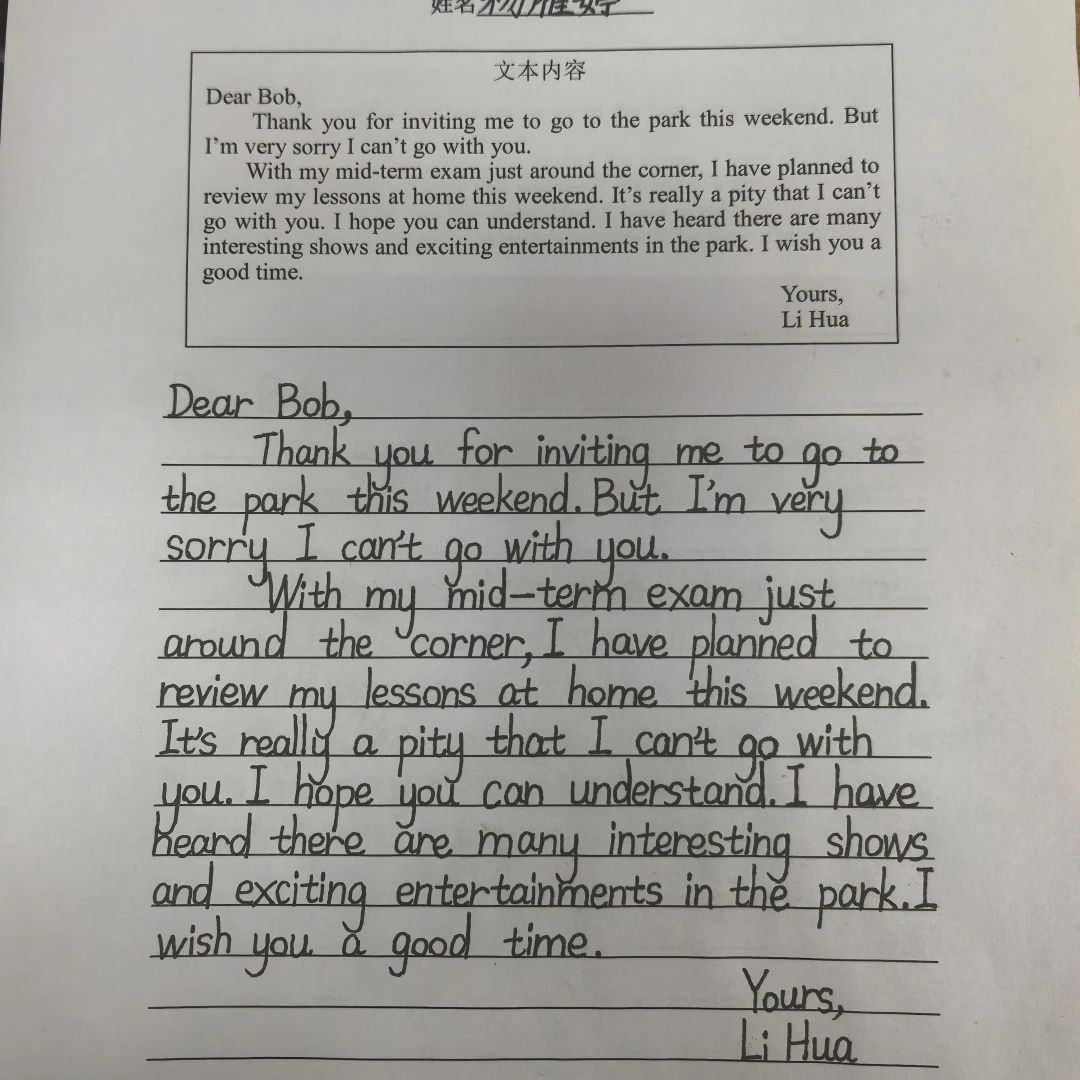 姓名
文本内容
Dear Bob,
Thank you for inviting me to go to the park this weekend. But
I'm very sorry I can't go with you.
With my mid-term exam just around the corner, I have planned to
review my lessons at home this weekend. It's really a pity that I can't
go with you. I hope you can understand. I have heard there are many
interesting shows and exciting entertainments in the park. I wish you a
good time.
Yours,
Li Hua
Dear Bob,
Thank you for inviting me to go to
the park this weekend. But I'm very
sorry I can't go with you.
With my mid-term exam just
around the corner, I have planned to
review my lessons at home this weekend.
It's really a pity that I can't go with
you. I hope you can understand. I have
heard there are many interesting shows
and exciting entertainments in the park. I
wish you a good time.
Yours,
Li Hua